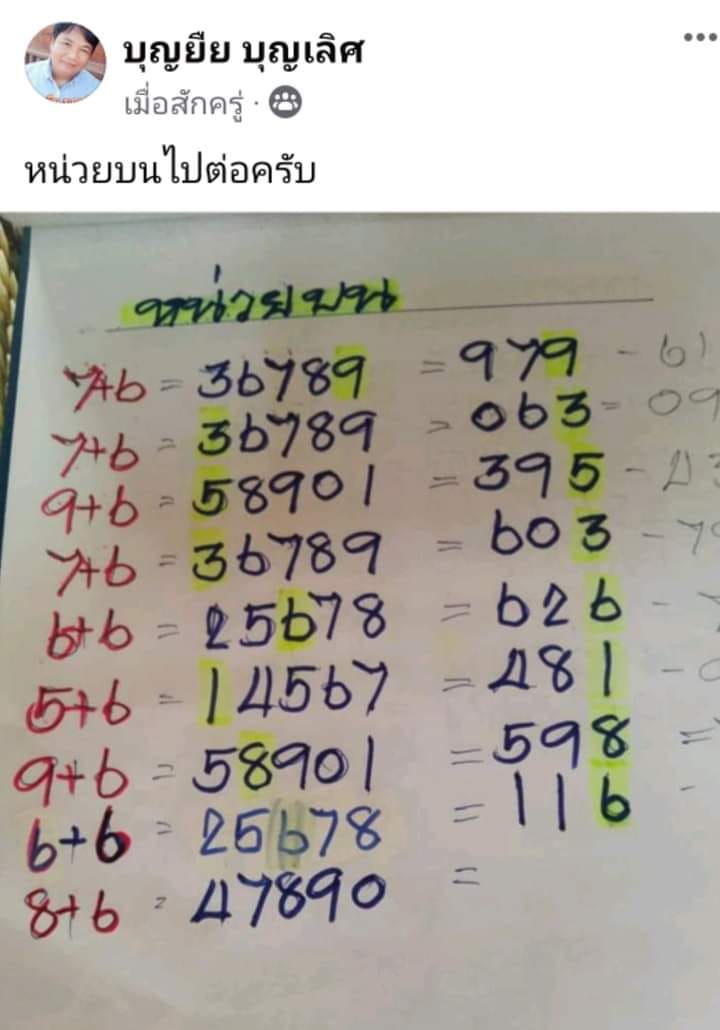 บุญยืย บุญเลิศ
เมื่อสักครู่ ·
หน่วยบนไปต่อครับ
หน่วยบน
7+6 = 36789 = 979 - 61
7+6 = 36789 = 063 = 09
9+6 = 58901 = 395 -
7+6 = 36789 = 603 -
6+6 = 25678 = 626 -
5+6 = 14567 = 481 -
9+6 = 58901 = 598 =
6+6 = 25678 = 116 -
8+6 = 47890 =